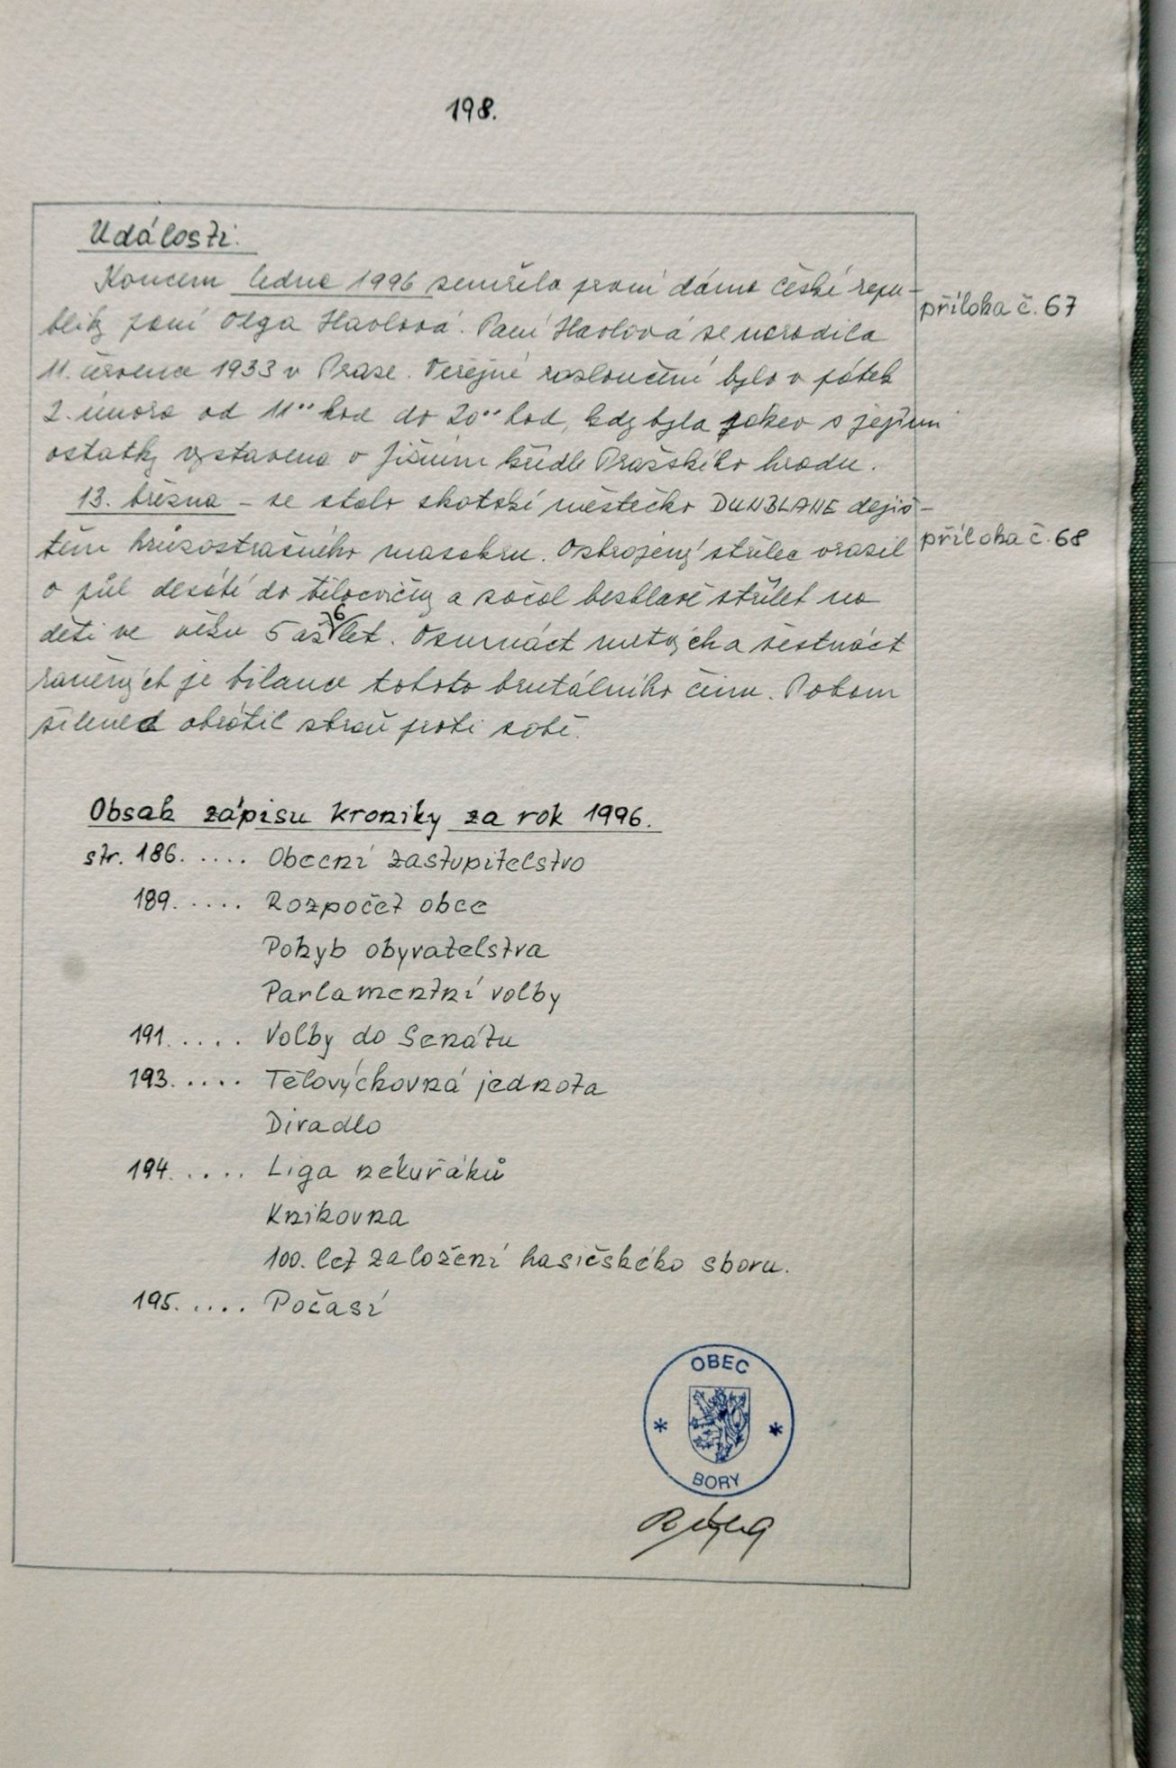 198.
Události.
Koncem ledna 1996 zemřela první dáma české repu-
příloha č. 67
bliky paní Olga Havlová. Paní Havlová se narodila
11. července 1933 v Praze. Veřejné rozloučení bylo v pátek
2. února od 11°° hod do 20°° hod, kdy byla rakev s jejími
ostatky vystavena v jižním křídle Pražského hradu.
13. března - se stalo skotské městečko DUNBLANE dějiš-
příloha č. 68
těm hrůzostrašného masakru. Ozbrojený střelec vrazil
o půl desáté do tělocvičny a začal bezhlavě střílet na
děti ve věku 5 až 6 let. Osumnáct mrtvých a šestnáct
raněných je bilance tohoto brutálního činu. Potom
šílenec obrátil zbraň proti sobě.
Obsah zápisu kroniky za rok 1996.
str. 186. .... Obecní zastupitelstvo
189. .... Rozpočet obce
Pohyb obyvatelstva
Parlamentní volby
191. .... Volby do Senátu
193. .... Tělovýchovná jednota
Divadlo
194. .... Liga nekuřáků
Knihovna
100. let založení hasičského sboru.
195. .... Počasí
OBEC
BORY